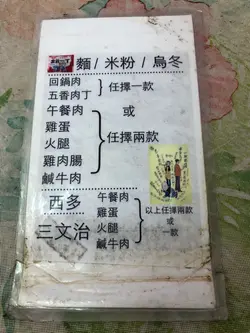 麵 / 米粉 / 烏冬
回鍋肉
五香肉丁
任擇一款
午餐肉
或
雞蛋
火腿
任擇兩款
雞肉腸
鹹牛肉
西多
三文治
午餐肉
雞蛋
火腿
鹹牛肉
以上任擇兩款
或
一款